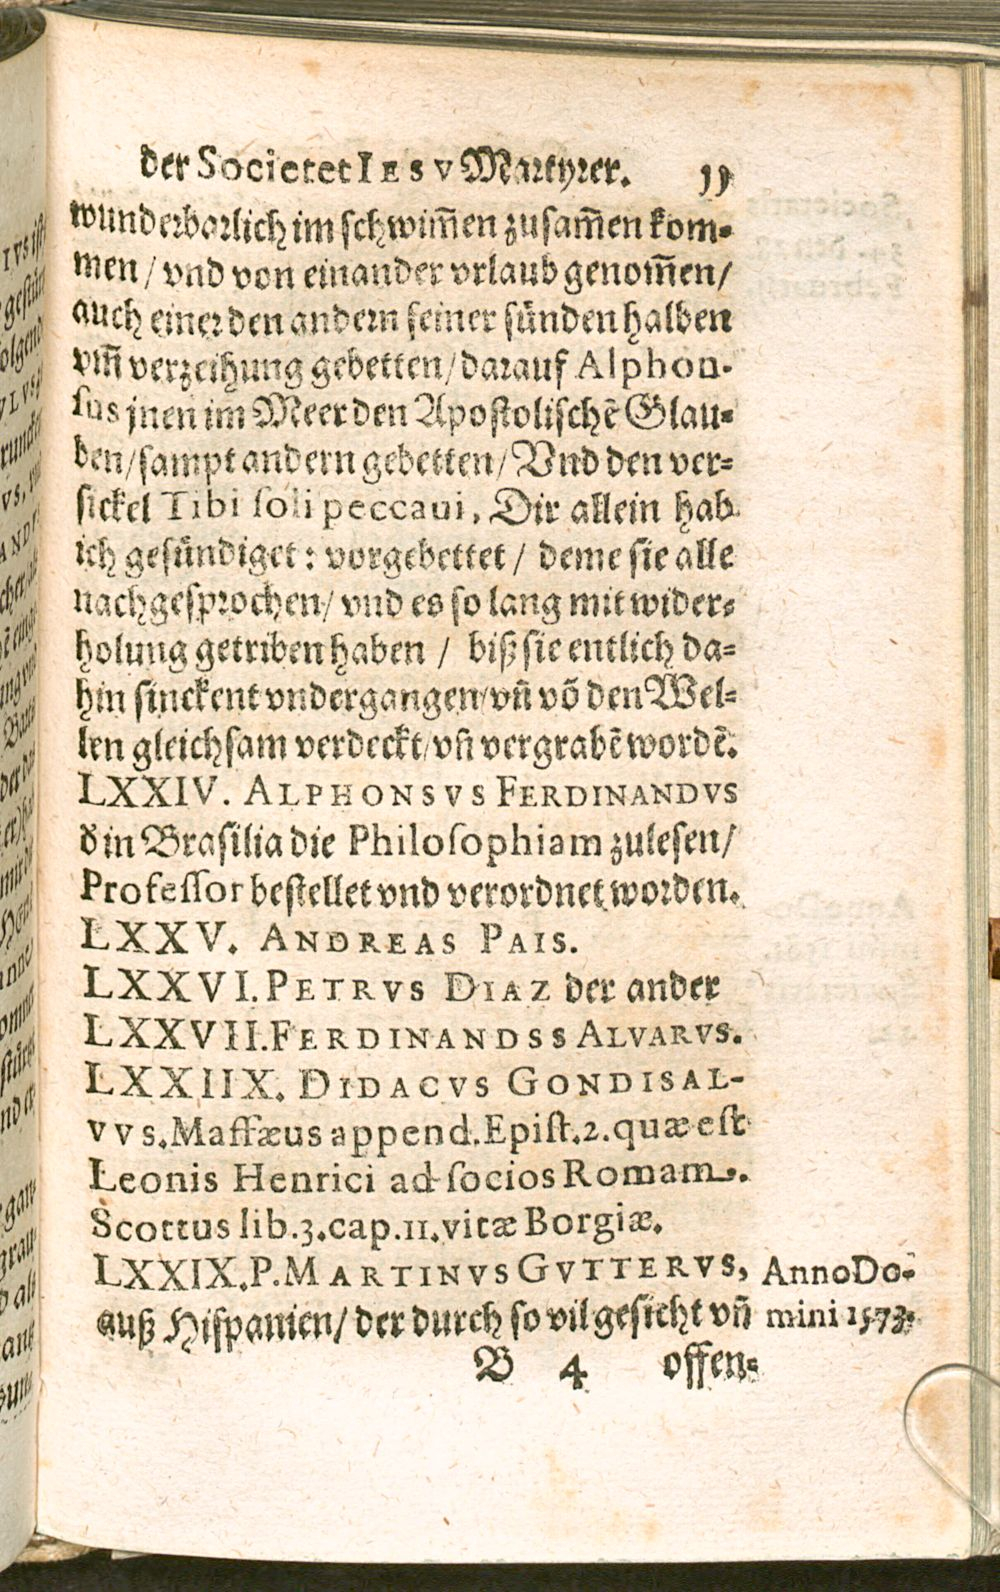 der Societet IESV Martyrer. 11
wunderbarlich im schwim̃en zusam̃en kom-
men / vnd von einander vrlaub genom̃en /
auch einer den andern seiner sünden halben
vm̃ verzeihung gebetten / darauf Alphon-
sus jnen im Meer den Apostolischẽ Glau-
ben / sampt andern gebetten / Vnd den ver-
sickel Tibi soli peccaui, Dir allein hab
ich gesündiget : vorgebettet / deme sie alle
nachgesprochen / vnd es so lang mit wider-
holung getriben haben / biß sie entlich da-
hin sinckent vndergangen / vñ võ den Wel-
len gleichsam verdeckt / vñ vergrabẽ wordẽ.
LXXIV. ALPHONSVS FERDINANDVS
d in Brasilia die Philosophiam zulesen /
Professor bestellet vnd verordnet worden.
LXXV. ANDREAS PAIS.
LXXVI. PETRVS DIAZ der ander
LXXVII. FERDINANDSS ALVARVS.
LXXIIX. DIDACVS GONDISAL-
VVS. Maffæus append. Epist. 2. quæ est
Leonis Henrici ad socios Romam.
Scottus lib. 3. cap. 11. vitæ Borgiæ.
LXXIX. P. MARTINVS GVTTERVS, Anno Do-
auß Hispanien / der durch so vil gesicht vñ mini 1573.
B 4 offen-